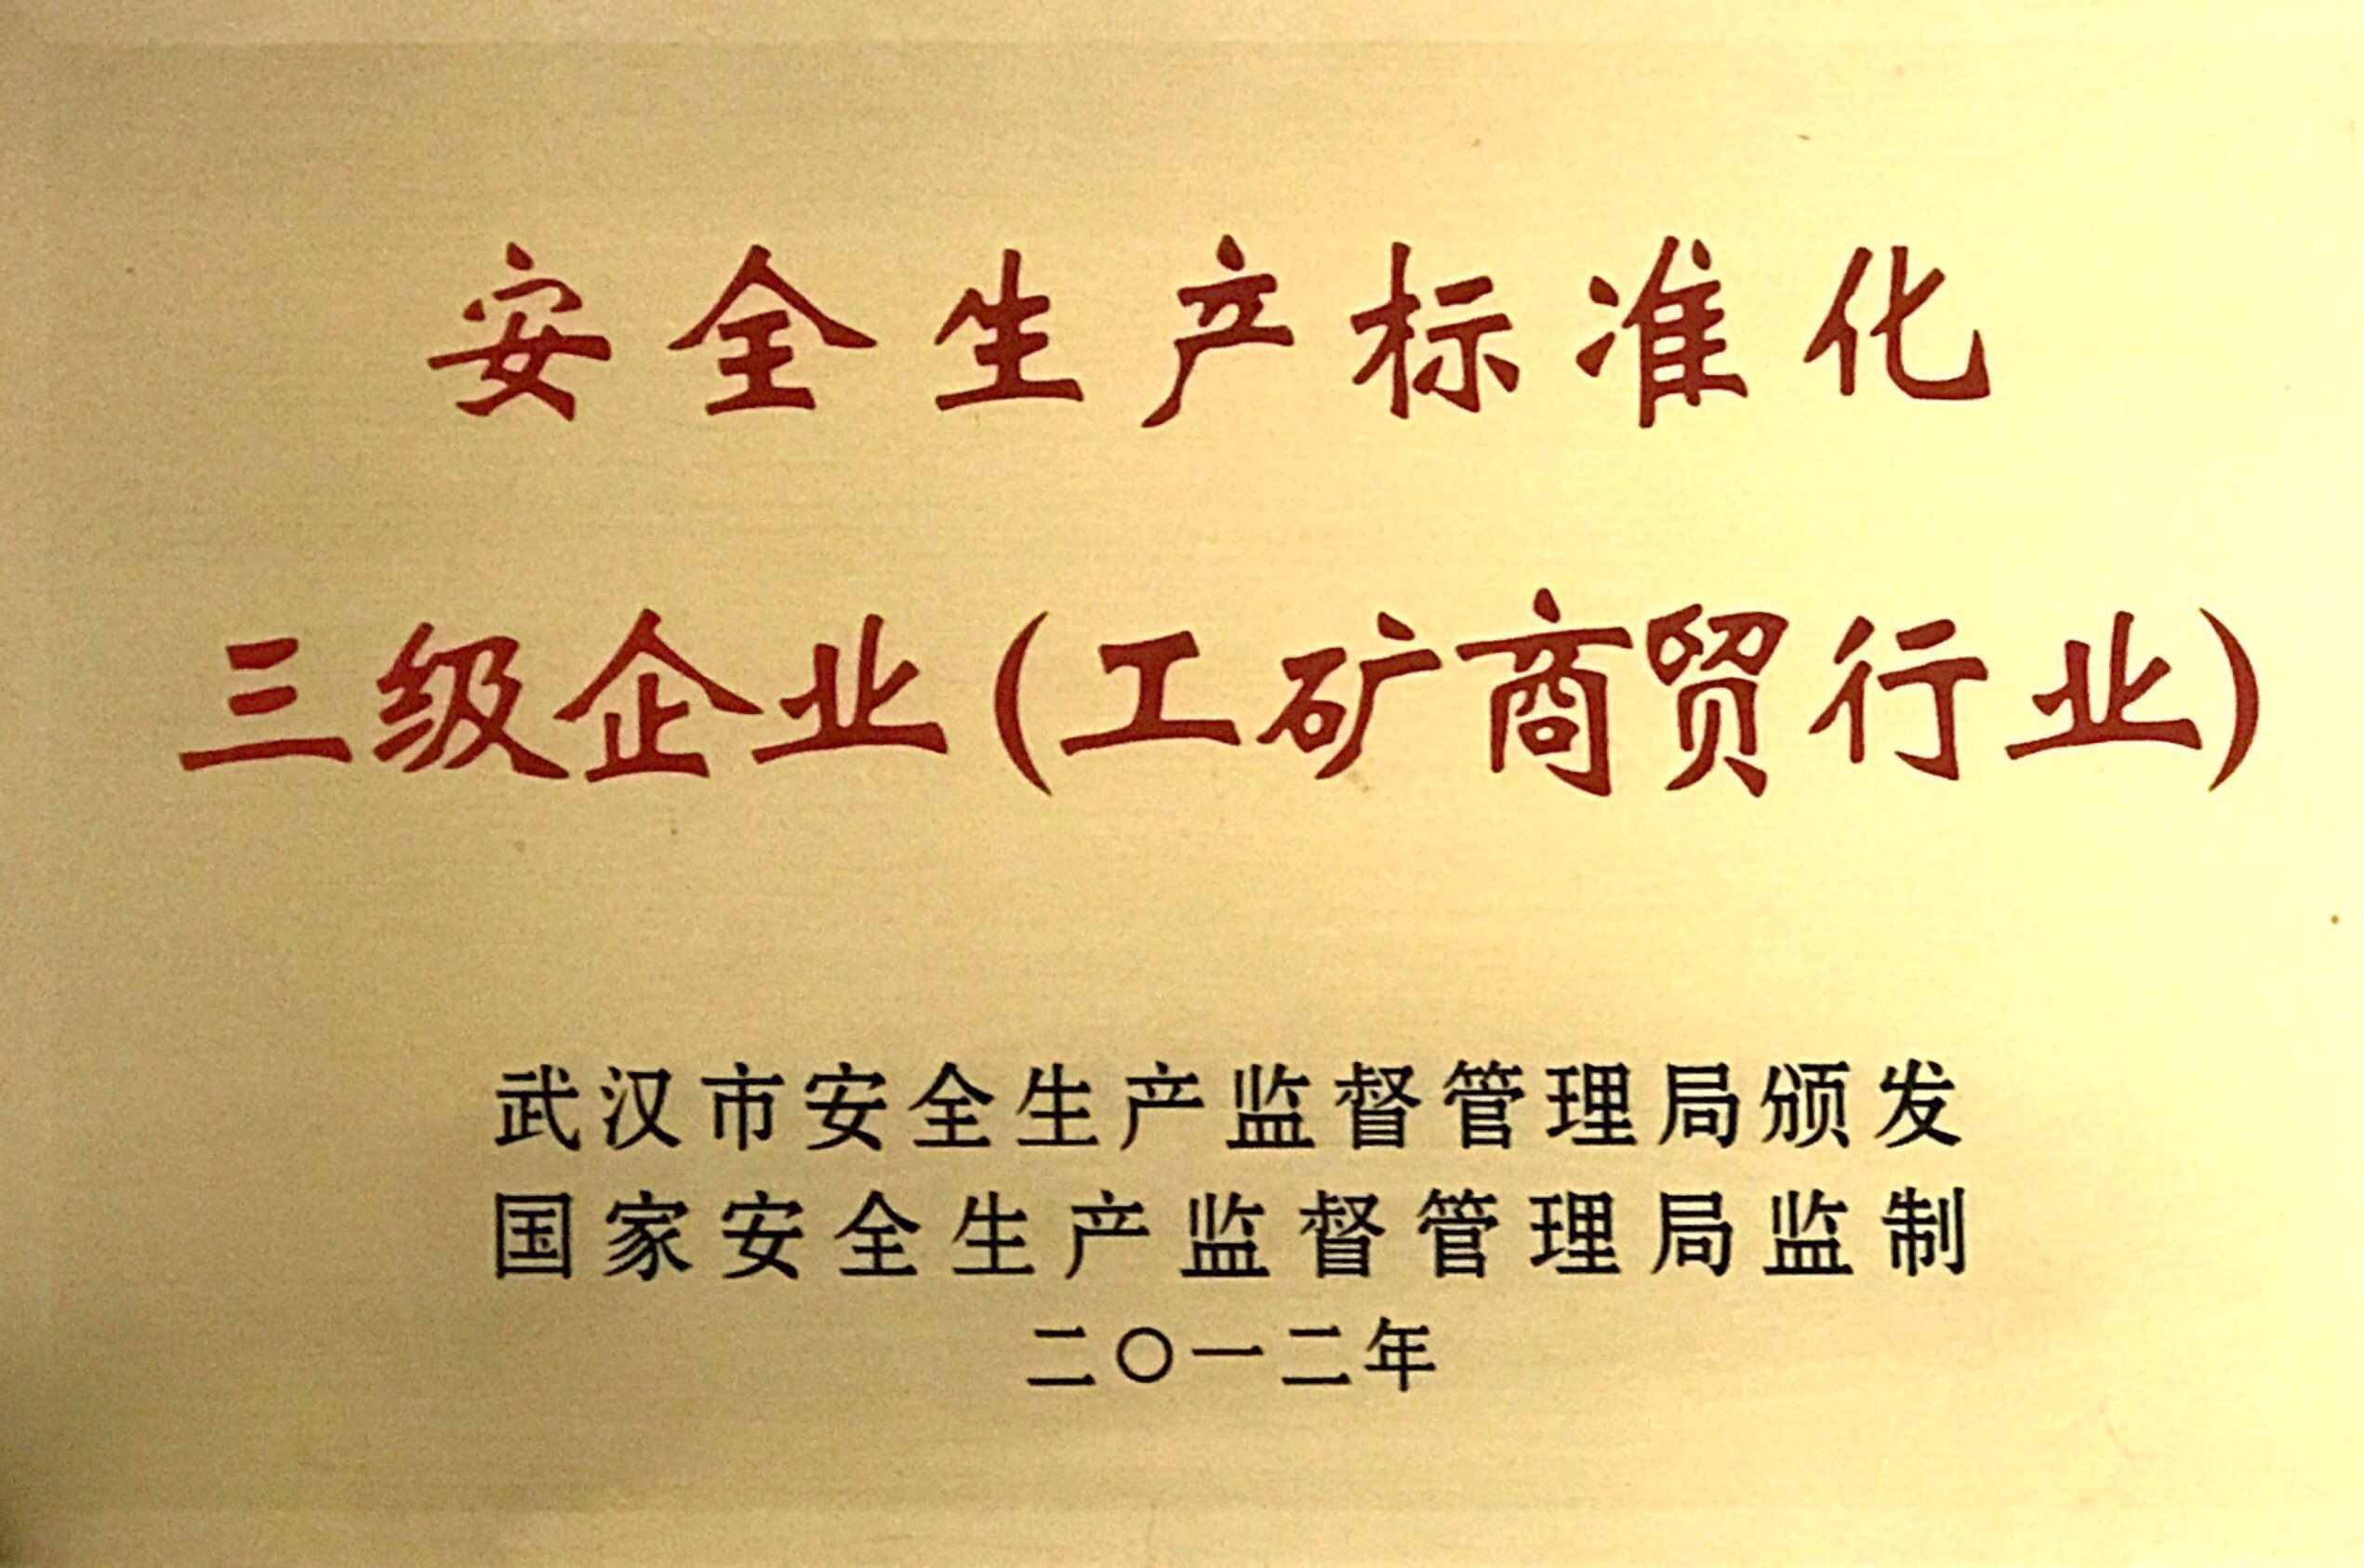 安全生产标准化
三级企业(工矿商贸行业)
武汉市安全生产监督管理局颁发
国家安全生产监督管理局监制
二〇一二年